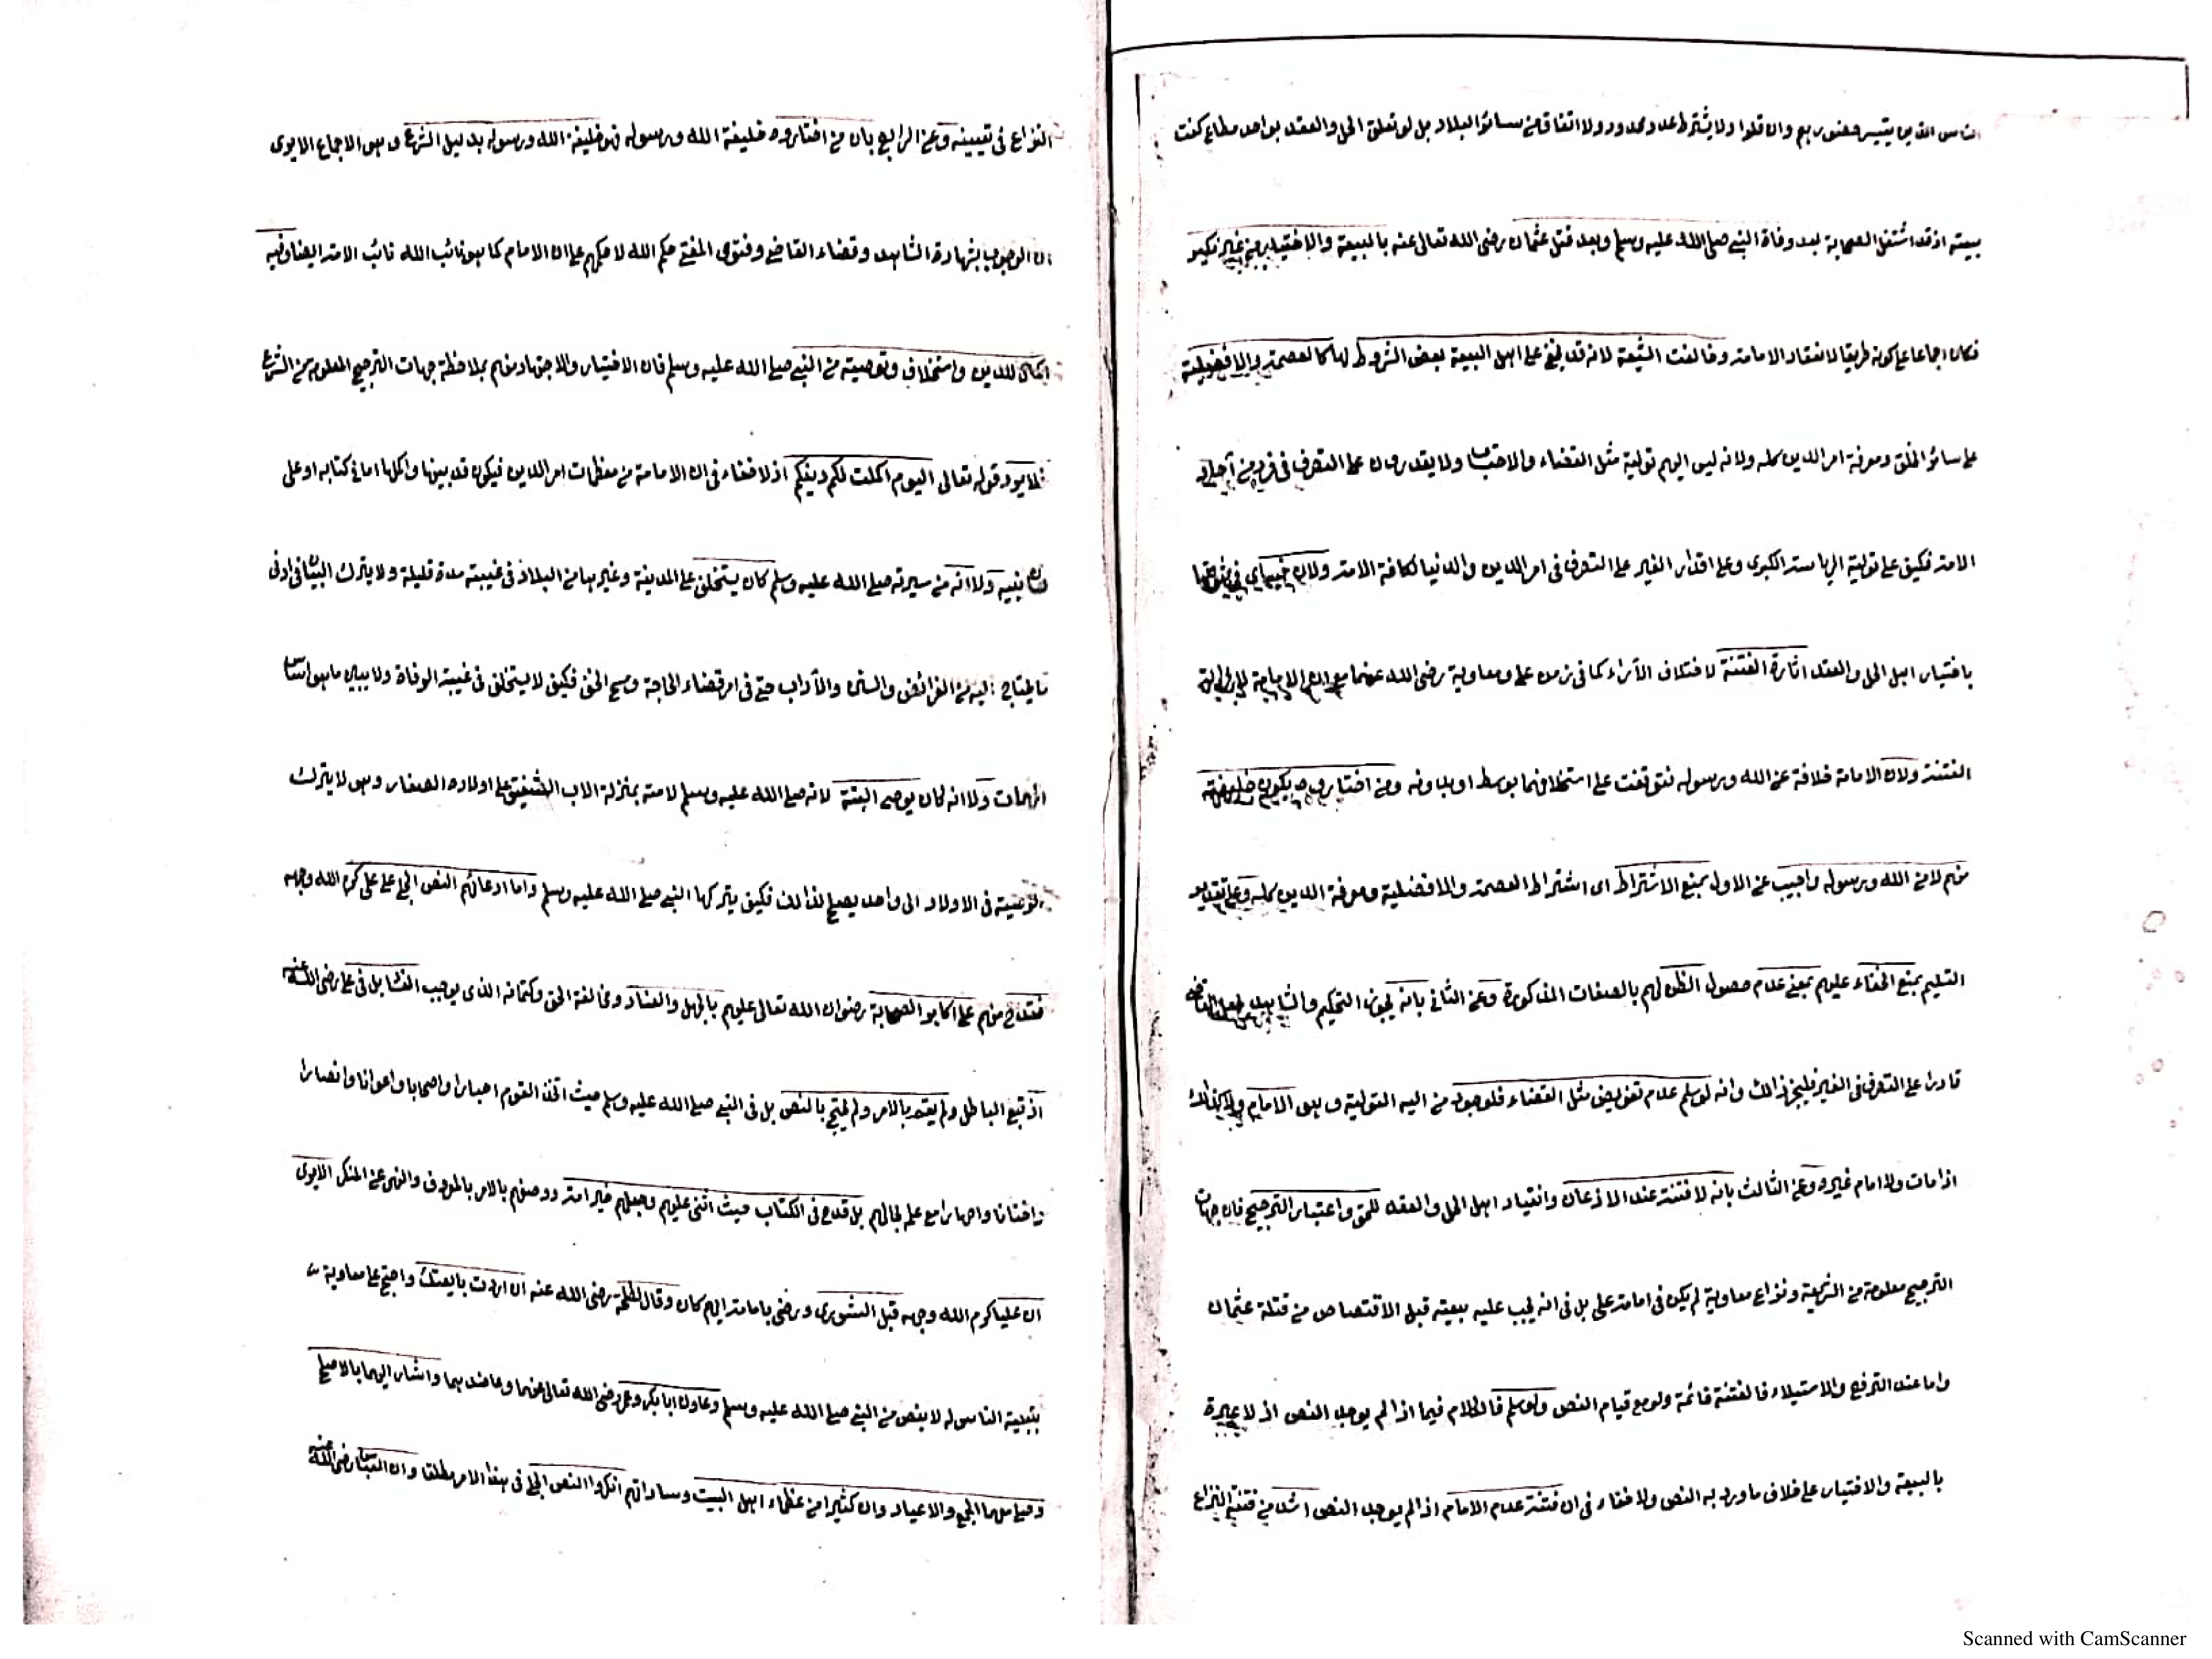 الناس الذين يتيسر حضورهم وان قلوا ولا يشترط عدد محدود ولا اتفاق من سائر البلاد بل لو تعلق الحل والعقد بواحد مطاع كفت
بيعته اذ قد اشتغل الصحابة بعد وفاة النبي صلى الله عليه وسلم وبعد قتل عثمان رضى الله تعالى عنه بالبيعة والاختيار من غير نكير
فكان اجماعا على كونه طريقا لانعقاد الامامة وخالفت الشيعة لانه قد يخفى على اهل البيعة بعض الشروط لها كالعصمة والافضلية
على سائر الخلق ومعرفة امر الدين كله ولانه ليس اليهم تولية مثل القضاء والاحتساب ولا يقدرون على التصرف في فرد من آحاد
الامة فكيف على تولية الرياسة الكبرى وعلى اقدار الغير على التصرف فى امر الدين والدنيا لكافة الامة ولان
باختيار اهل الحل والعقد اثارة الفتنة لاختلاف الآراء كما فى زمن على ومعاوية رضى الله عنهما مع ان الامامة لازالة
الفتنة ولان الامامة خلافة عن الله ورسوله فتوقفت على استخلافهما بوسط او بدونه ومن اختاروه يكون خليفة
منهم لا من الله ورسوله واجيب عن الاول بمنع الاشتراط اى اشتراط العصمة والافضلية ومعرفة الدين كله وعلى تقدير
التسليم بمنع الخفاء عليهم بمعنى عدم حصول الظن لهم بالصفات المذكورة وعن الثانى بانه يجوز التحكيم والشاهد يجعل القاضى
قادرا على التصرف فى الغير فليجز ذالك وانه لو سلم عدم تفويض مثل القضاء فلوجود من اليه التولية وهو الامام ولا كذالك
اذا مات ولا امام غيره وعن الثالث بانه لا فتنة عند الاذعان وانقياد اهل الحل والعقد للحق واعتبار الترجيح فان جهات
الترجيح معلومة من الشريعة ونزاع معاوية لم يكن فى امامة على بل فى انه يجب عليه بيعته قبل الاقتصاص من قتلة عثمان
واما عند الترفع والاستيلاء فالفتنة قائمة ولو مع قيام النص ولو سلم فالكلام فيما اذا لم يوجد النص اذ لا عبرة
بالبيعة والاختيار على خلاف ما ورد به النص ولا خفاء فى ان فتنة عدم الامام اذا لم يوجد النص اشد من فتنة النزاع
النزاع فى تعيينه وعن الرابع بان من اختاروه خليفة الله ورسوله فهو خليفة الله ورسوله بدليل الشرع وهو الاجماع الا يرى
ان الوجوب بشهادة الشاهد وقضاء القاضى وفتوى المفتى حكم الله لا حكمهم على ان الامام كما هو نائب الله نائب الامة ايضا وفيه
اكمال للدين واستخلاف وتوصية من النبى صلى الله عليه وسلم فان الاختيار والاجتهاد منهم بملاحظة جهات الترجيح المعلومة من الشرع
فلا يرد قوله تعالى اليوم اكملت لكم دينكم اذ لا خفاء فى ان الامامة من معظمات امر الدين فيكون قد بينها واكملها اما فى كتابه او على
لسان نبيه ولا انه من سيرته صلى الله عليه وسلم كان يستخلف على المدينة وغيرها من البلاد فى غيبته مدة قليلة ولا يترك البيان فى ادنى
ما يحتاج اليه من الفرائض والسنن والآداب حتى فى امر قضاء الحاجة ومسح الخف فكيف لا يستخلف فى غيبته الوفاة ولا يبين ما هو اساس
المهمات ولا انه كان يوصى البتة لانه صلى الله عليه وسلم لامته بمنزلة الاب الشفيق على اولاده الصغار وهو لا يترك
التوصية فى الاولاد الى واحد يصلح لذالك فكيف يتركها النبى صلى الله عليه وسلم واما ادعائهم النص الجلى على على كرم الله وجهه
فقدح منهم على اكابر الصحابة رضوان الله تعالى عليهم بالجهل والعناد ومخالفة الحق وكتمانه الذى يوجب الفسق بل فى على رضى الله عنه
اذ تبع الباطل ولم يعتد بالامر ولم يحتج بالنص بل فى النبى صلى الله عليه وسلم حيث اتخذ القوم احبارا واصحابا واعوانا وانصارا
واختانا واصهارا مع علمه بحالهم بل قدح فى الكتاب حيث اثنى عليهم وجعلهم خير امة ووصفهم بالامر بالمعروف والنهى عن المنكر الا يرى
ان عليا كرم الله وجهه قبل الشورى ورضى بامامة ايهم كان وقال لطلحة رضى الله عنه ان اردت بايعتك واحتج على معاوية
ببيعة الناس له لا بنص من النبى صلى الله عليه وسلم وعاون ابا بكر وعمر رضى الله تعالى عنهما وعاضدهما واشار اليهما بالاصلح
وصلى معهما الجمع والاعياد وان كثيرا من عظماء اهل البيت وساداتهم انكروا النص الجلى فى هذا الامر مطلقا وان العباس رضى الله عنه
Scanned with CamScanner